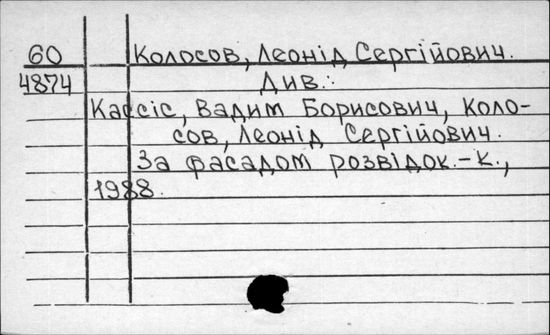 60 Колосов, Леонід Сергійович.
4874 Див.:
Кассіс, Вадим Борисович, Коло-
сов, Леонід Сергійович.
За фасадом розвідок.-К.,
1988.